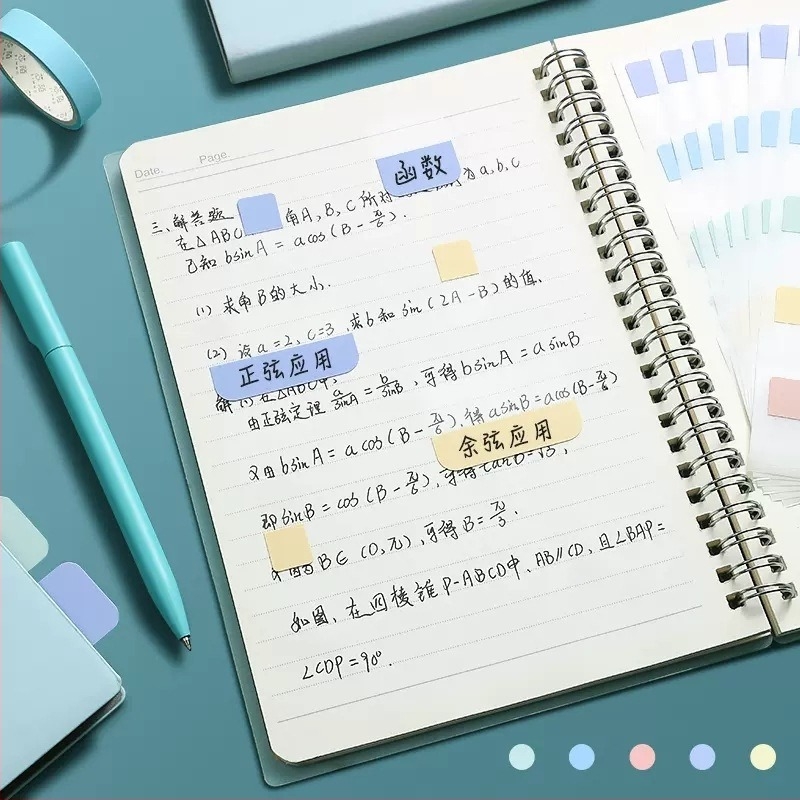 Date. Page.
函数
三、解答题
在△ABC 角A, B, C 所对 为a, b, c
已知 bsinA = acos(B-π/6).
(1) 求角B的大小.
(2) 设a=2, c=3, 求b和sin(2A-B)的值.
正弦应用
解 在△ABC中,
由正弦定理 a/sinA = b/sinB, 可得bsinA = asinB
又由bsinA = acos(B-π/6), 得asinB=acos(B-π/6)
余弦应用
即sinB = cos(B-π/6), 可得tanB=√3,
B∈(0,π), 可得B=π/3.
如图, 在四棱锥P-ABCD中, AB//CD, 且∠BAP=
∠CDP=90°.